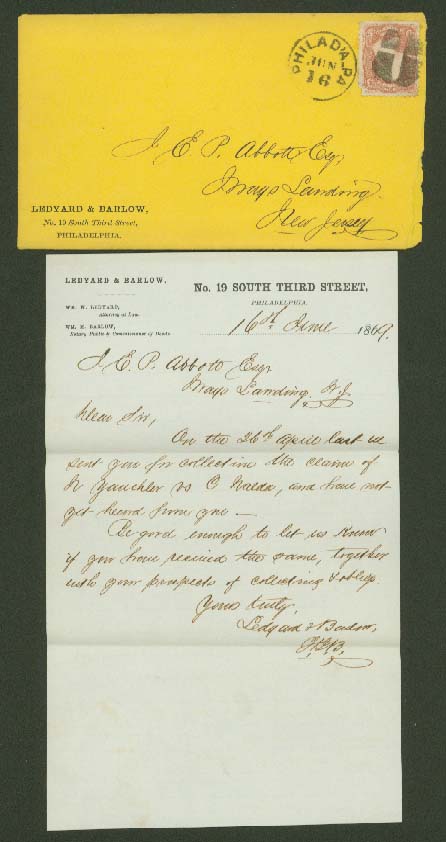 PHILAD'A. PA
JUN
16
J. E. P. Abbott Esq,
Mays Landing.
New Jersey
LEDYARD & BARLOW,
No. 19 South Third Street,
PHILADELPHIA.
LEDYARD & BARLOW,
No. 19 SOUTH THIRD STREET,
PHILADELPHIA,
WM. W. LEDYARD,
Attorney at Law.
WM. H. BARLOW,
Notary Public & Commissioner of Deeds.
16th June 1869.
J. E. P. Abbott Esq,
Mays Landing. N.J.
Dear Sir,
On the 26th April last we
sent you for collection the claim of
vs C, and have not
yet heard from you —
Be good enough to let us know
if you have received the same, together
with your prospects of collecting & oblige.
Yours truly,
Ledyard & Barlow,